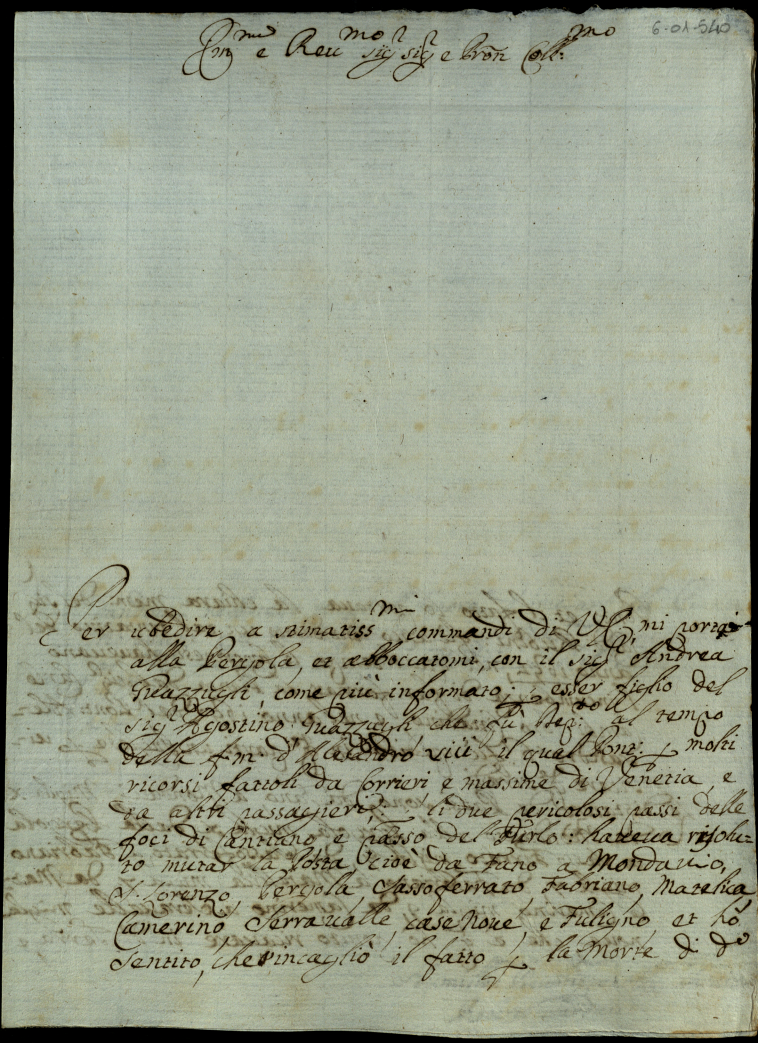 6-01-540
Em.mo e Rev.mo Sig.r Sig.r e Pron Coll:mo
Per ubedire a stimatiss.mi commandi di V.E. mi portai
alla Pergola, et abboccatomi, con il Sig.r Andrea
Guazzugli, come più informato; esser figlio del
Sig.r Agostino Guazzugli che fù al tempo
della f.m. d'Alesandro VIII il qual Pont: p molti
ricorsi fattoli da Corrieri e massime di Venetia, e
da altri passagieri: li due pericolosi passi delle
foci di Cantiano, e passo del Furlo: haveva risolu=
to mutar la Posta, cioè da Fano a Mondavio,
S. Lorenzo, Pergola Sassoferrato Fabriano, Matelica
Camerino Serravalle, case Nove, e Fuligno et hò
sentito, che rincagliò il fatto p la Morte di d.o